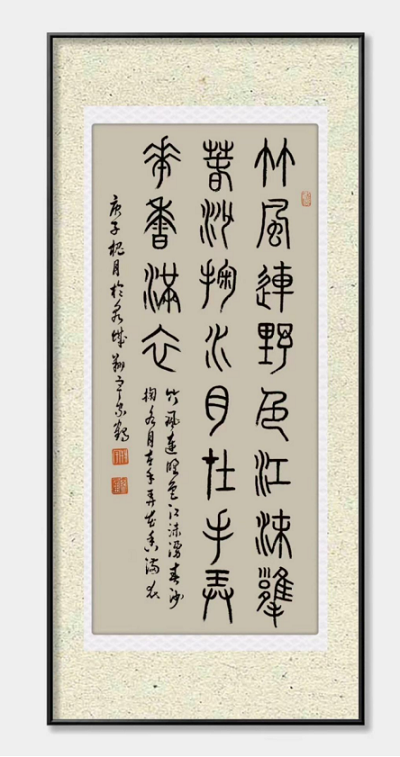 竹風連野色江沫擁
春沙掬水月在手弄
花香滿衣
竹風連野色江沫擁春沙
掬水月在手弄花香滿衣
庚子槐月於泉城